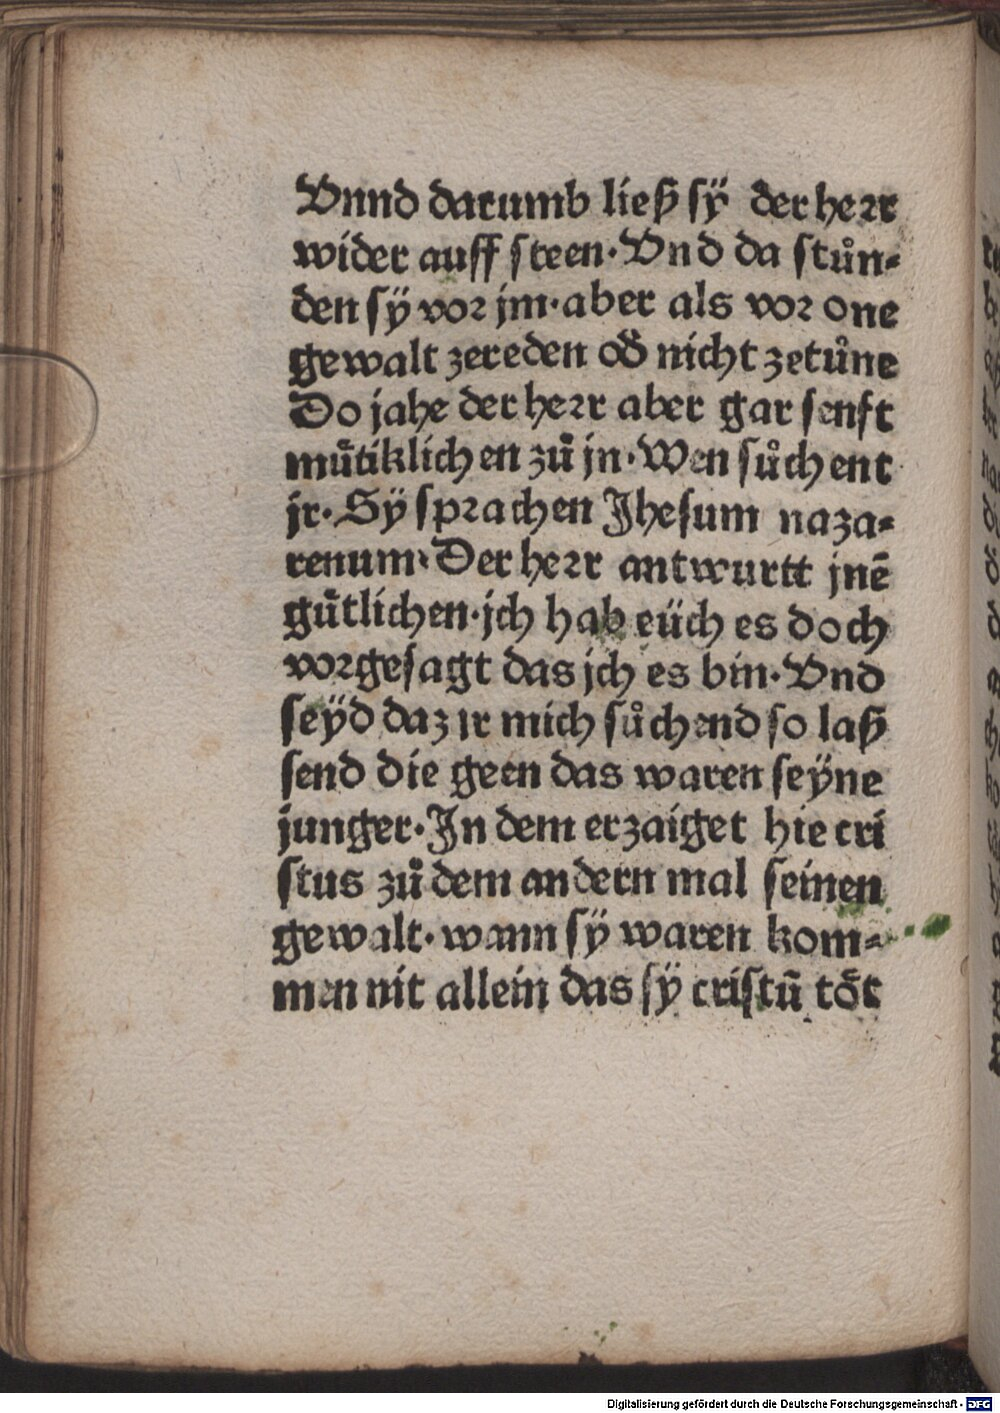 Vnnd darumb ließ sÿ der herr
wider auff steen·Vnd da stůn⸗
den sÿ vor jm·aber als vor one
gewalt zereden od̃ nicht zetůne
Do jahe der herr aber gar senft
mũtiklichen zů jn·Wen sůchent
jr·Sÿ sprachen Jhesum naza⸗
renum·Der herr antwurtt jnē
gũtlichen·jch hab eüch es doch
vorgesagt das jch es bin·Vnd
seÿd daz ir mich sůchend so laß
send die geen das waren seÿne
junger·Jn dem erzaiget hie cri
stus zů dem andern mal seinen
gewalt·wann sÿ waren kom⸗
men nit allein das sÿ cristū tȫt
Digitalisierung gefördert durch die Deutsche Forschungsgemeinschaft - DFG